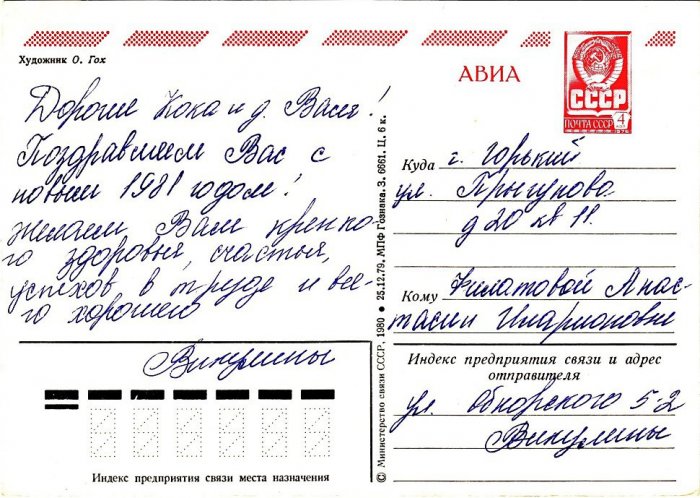 Художник О. Гох
АВИА
СССР
ПОЧТА СССР 4
Дорогие Кока и д. Валя!
Поздравляем Вас с
новым 1981 годом!
желаем Вам крепко-
го здоровья, счастья,
успехов в труде и все-
го хорошего
Викулины
Куда г. Горький
ул. Прыгунова
д 20 кв 11.
Кому Филатовой Анас-
тасии Иларионовне
Индекс предприятия связи и адрес
отправителя
ул. Обнорского 5-2
Викулины
Индекс предприятия связи места назначения
© Министерство связи СССР, 1980 ● 25.12.79. МПФ Гознака. З. 6661. Ц. 6 к.